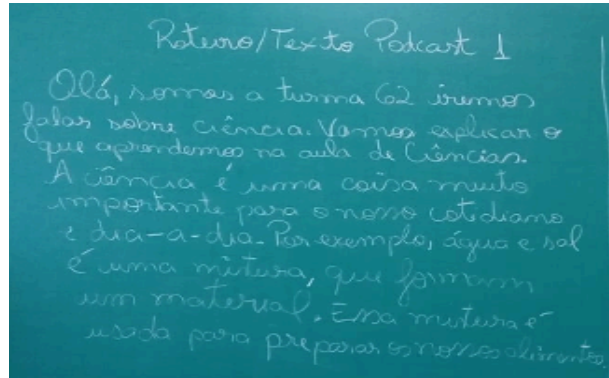 Roteiro/Texto Podcast 1
Olá, somos a turma 62 iremos
falar sobre ciência. Vamos explicar o
que aprendemos na aula de Ciências.
A ciência é uma coisa muito
importante para o nosso cotidiano
e dia-a-dia. Por exemplo, água e sal
é uma mistura, que formam
um material. Essa mistura é
usada para preparar os nossos alimentos.